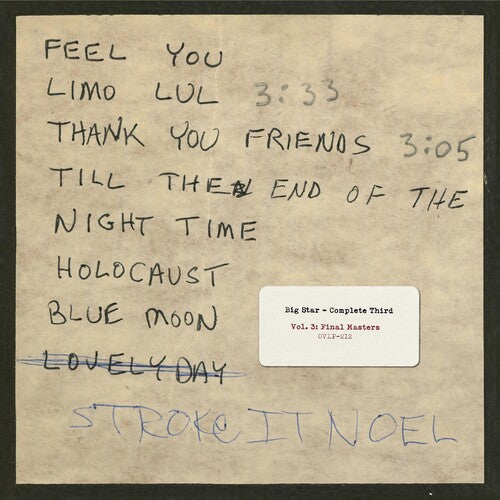 FEEL YOU
LIMO LUL 3:33
THANK YOU FRIENDS 3:05
TILL THE END OF THE
NIGHT TIME
HOLOCAUST
BLUE MOON
LOVELY DAY
STROKE IT NOEL
Big Star - Complete Third
Vol. 3: Final Masters
OVLP-212